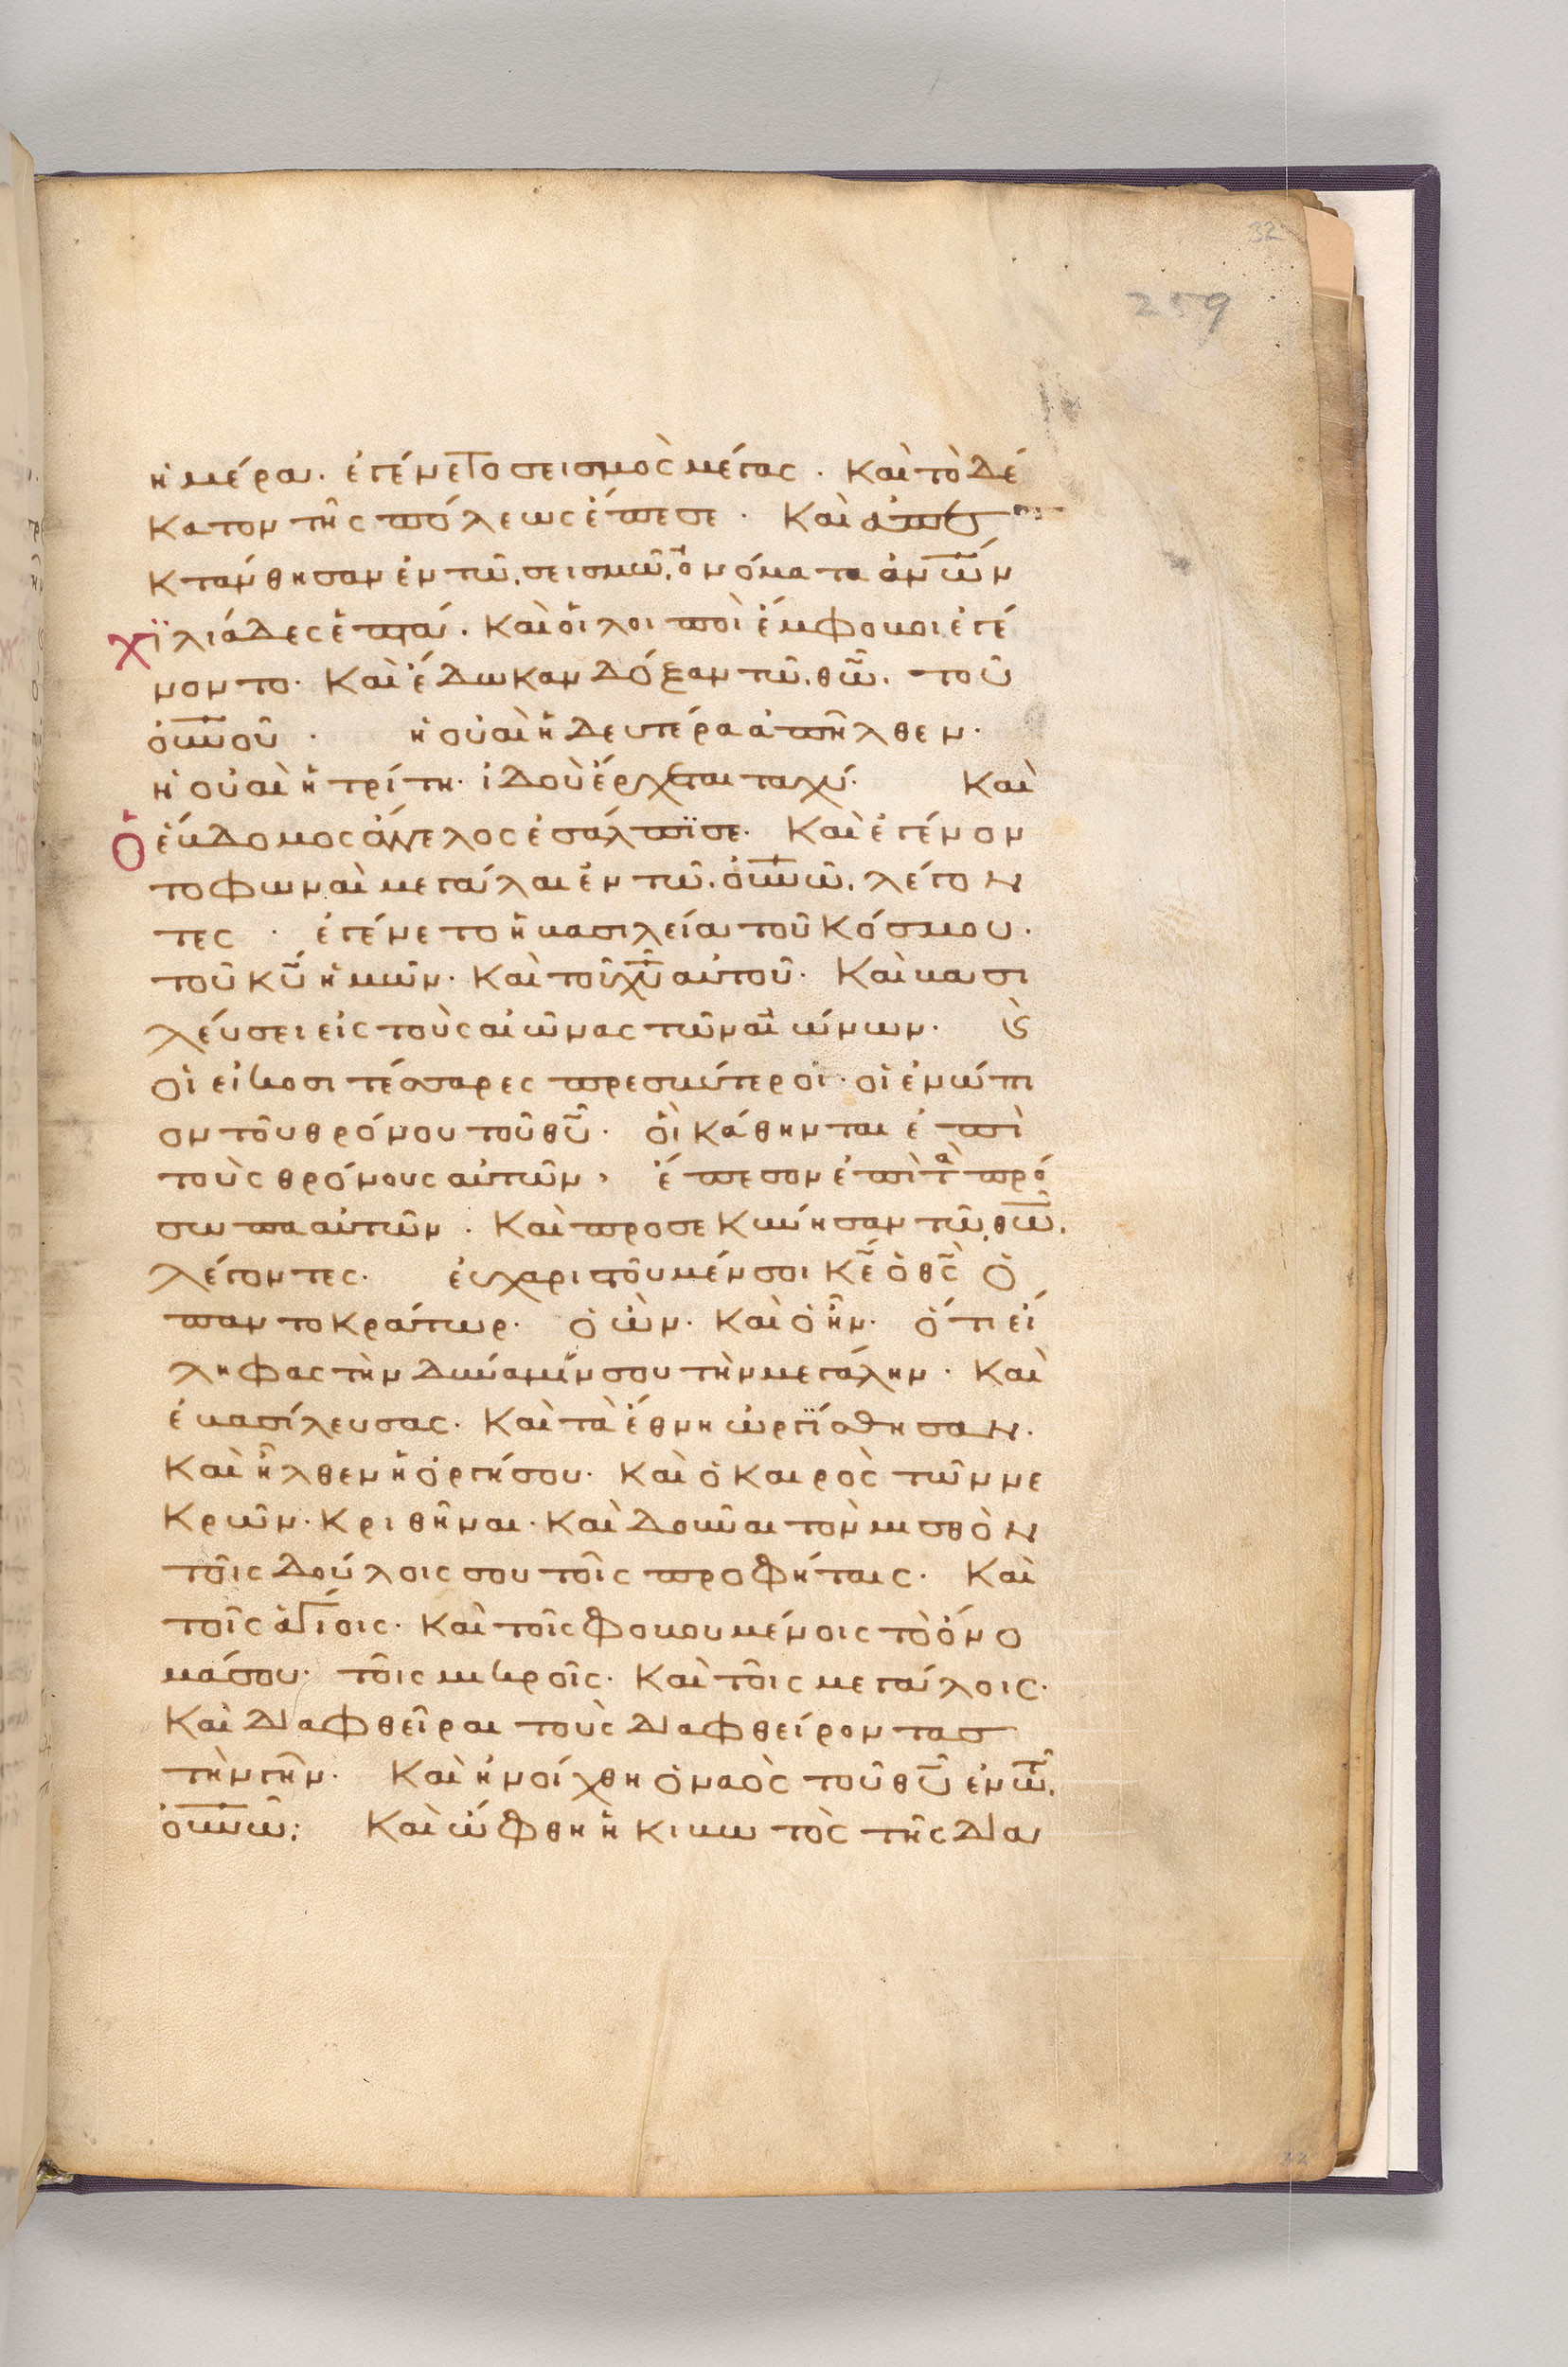 32
259
ἡμέρα. ἐγένετο σεισμὸς μέγας. Καὶ τὸ δέ
κατον τῆς πόλεως ἔπεσε. Καὶ ἀπε
κτάνθησαν ἐν τῶ σεισμῶ, ὀνόματα ἀν̅ω̅ν
χϊλιάδες ἑπτά. Καὶ οἱ λοιποὶ ἔμφοβοι ἐγέ
νοντο. Καὶ ἔδωκαν δόξαν τῶ θ̅ω̅. τοῦ
ο̅υ̅ν̅οῦ. ἡ οὐαὶ ἡ δευτέρα ἀπῆλθεν.
ἡ οὐαὶ ἡ τρίτη. ἰδοὺ ἔρχεται ταχύ. Καὶ
Ὁ ἕβδομος ἄγγελος ἐσάλπϊσε. Καὶ ἐγένον
το φωναὶ μεγάλαι ἐν τῶ ο̅υ̅ν̅ῶ, λέγον
τες. ἐγένετο ἡ βασιλεία τοῦ Κόσμου.
τοῦ κ̅υ̅ ἡμῶν. Καὶ τοῦ χ̅υ̅ αὐτοῦ. Καὶ βασι
λεύσει εἰς τοὺς αἰῶνας τῶν αἰώνων. ϗ
οἱ εἴκοσι τέσσαρες πρεσβύτεροι. οἱ ἐνώπι
ον τοῦ θρόνου τοῦ θ̅υ̅. οἳ κάθηνται ἐπὶ
τοὺς θρόνους αὐτῶν, ἔπεσον ἐπὶ τὰ πρό
σωπα αὐτῶν. Καὶ προσεκύνησαν τῶ θ̅ω̅.
λέγοντες. εὐχαριστοῦμέν σοι κ̅ε̅ ὁ θ̅ς̅ ὁ
παντοκράτωρ. ὁ ὢν. Καὶ ὁ ἦν. ὅτι εἴ
ληφας τὴν δύναμίν σου τὴν μεγάλην. Καὶ
ἐβασίλευσας. Καὶ τὰ ἔθνη ὠργϊσθησαν.
Καὶ ἦλθεν ἡ ὀργή σου. Καὶ ὁ καιρὸς τῶν νε
κρῶν. κριθῆναι. Καὶ δοῦναι τὸν μισθὸν
τοῖς δούλοις σου τοῖς προφήταις. Καὶ
τοῖς ἁγίοις. Καὶ τοῖς φοβουμένοις τὸ ὄνο
μά σου. τοῖς μικροῖς. Καὶ τοῖς μεγάλοις.
Καὶ διαφθεῖραι τοὺς διαφθείροντας
τὴν γῆν. Καὶ ἠνοίχθη ὁ ναὸς τοῦ θ̅υ̅ ἐν τῶ
ο̅υ̅ν̅ῶ: Καὶ ὤφθη ἡ κιβωτὸς τῆς δια
32